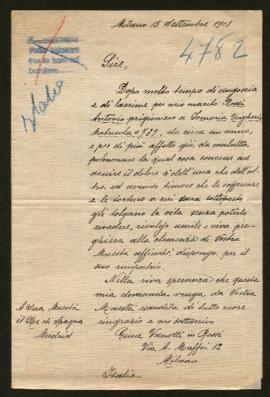 Milano 15 Settembre 1918
4782
Italia
Sire,
Dopo molto tempo di angoscia
e di lacrime per mio marito Rossi
Antonio prigioniero a Ungheria
Matricola da circa un anno,
e per di più affetto già da malattia
polmonare la qual cosa concorre ad
il dolore si dell'una che dell'al-
tro, ed avendo timore che le sofferenze
e le torture a cui sarà sottoposto
gli tolgano la vita senza poterlo
rivedere, rivolgo umile e viva pre-
ghiera alla clemenza di Vostra
Maestà affinchè disponga per il
suo rimpatrio.
Nella viva speranza che questa
mia domanda venga da Vostra
Maestà esaudita di tutto cuore
ringrazio e mi sottoscrivo
Gina Vanotti in Rossi
Via A. Maffei 12
Milano
Italia
A Sua Maestà
il Re di Spagna
Madrid